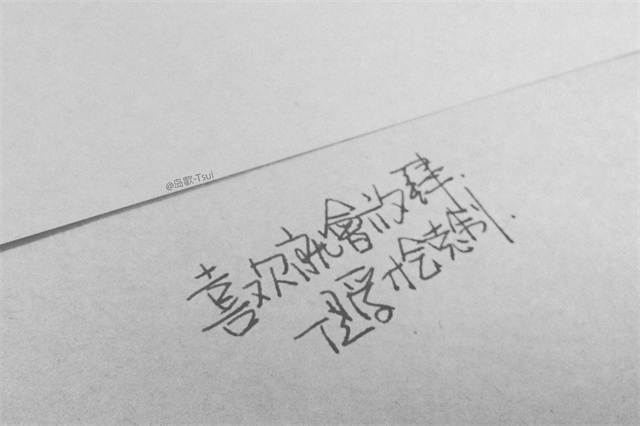 @岛歌-Tsui
喜欢就會放肆.
但爱才会克制.